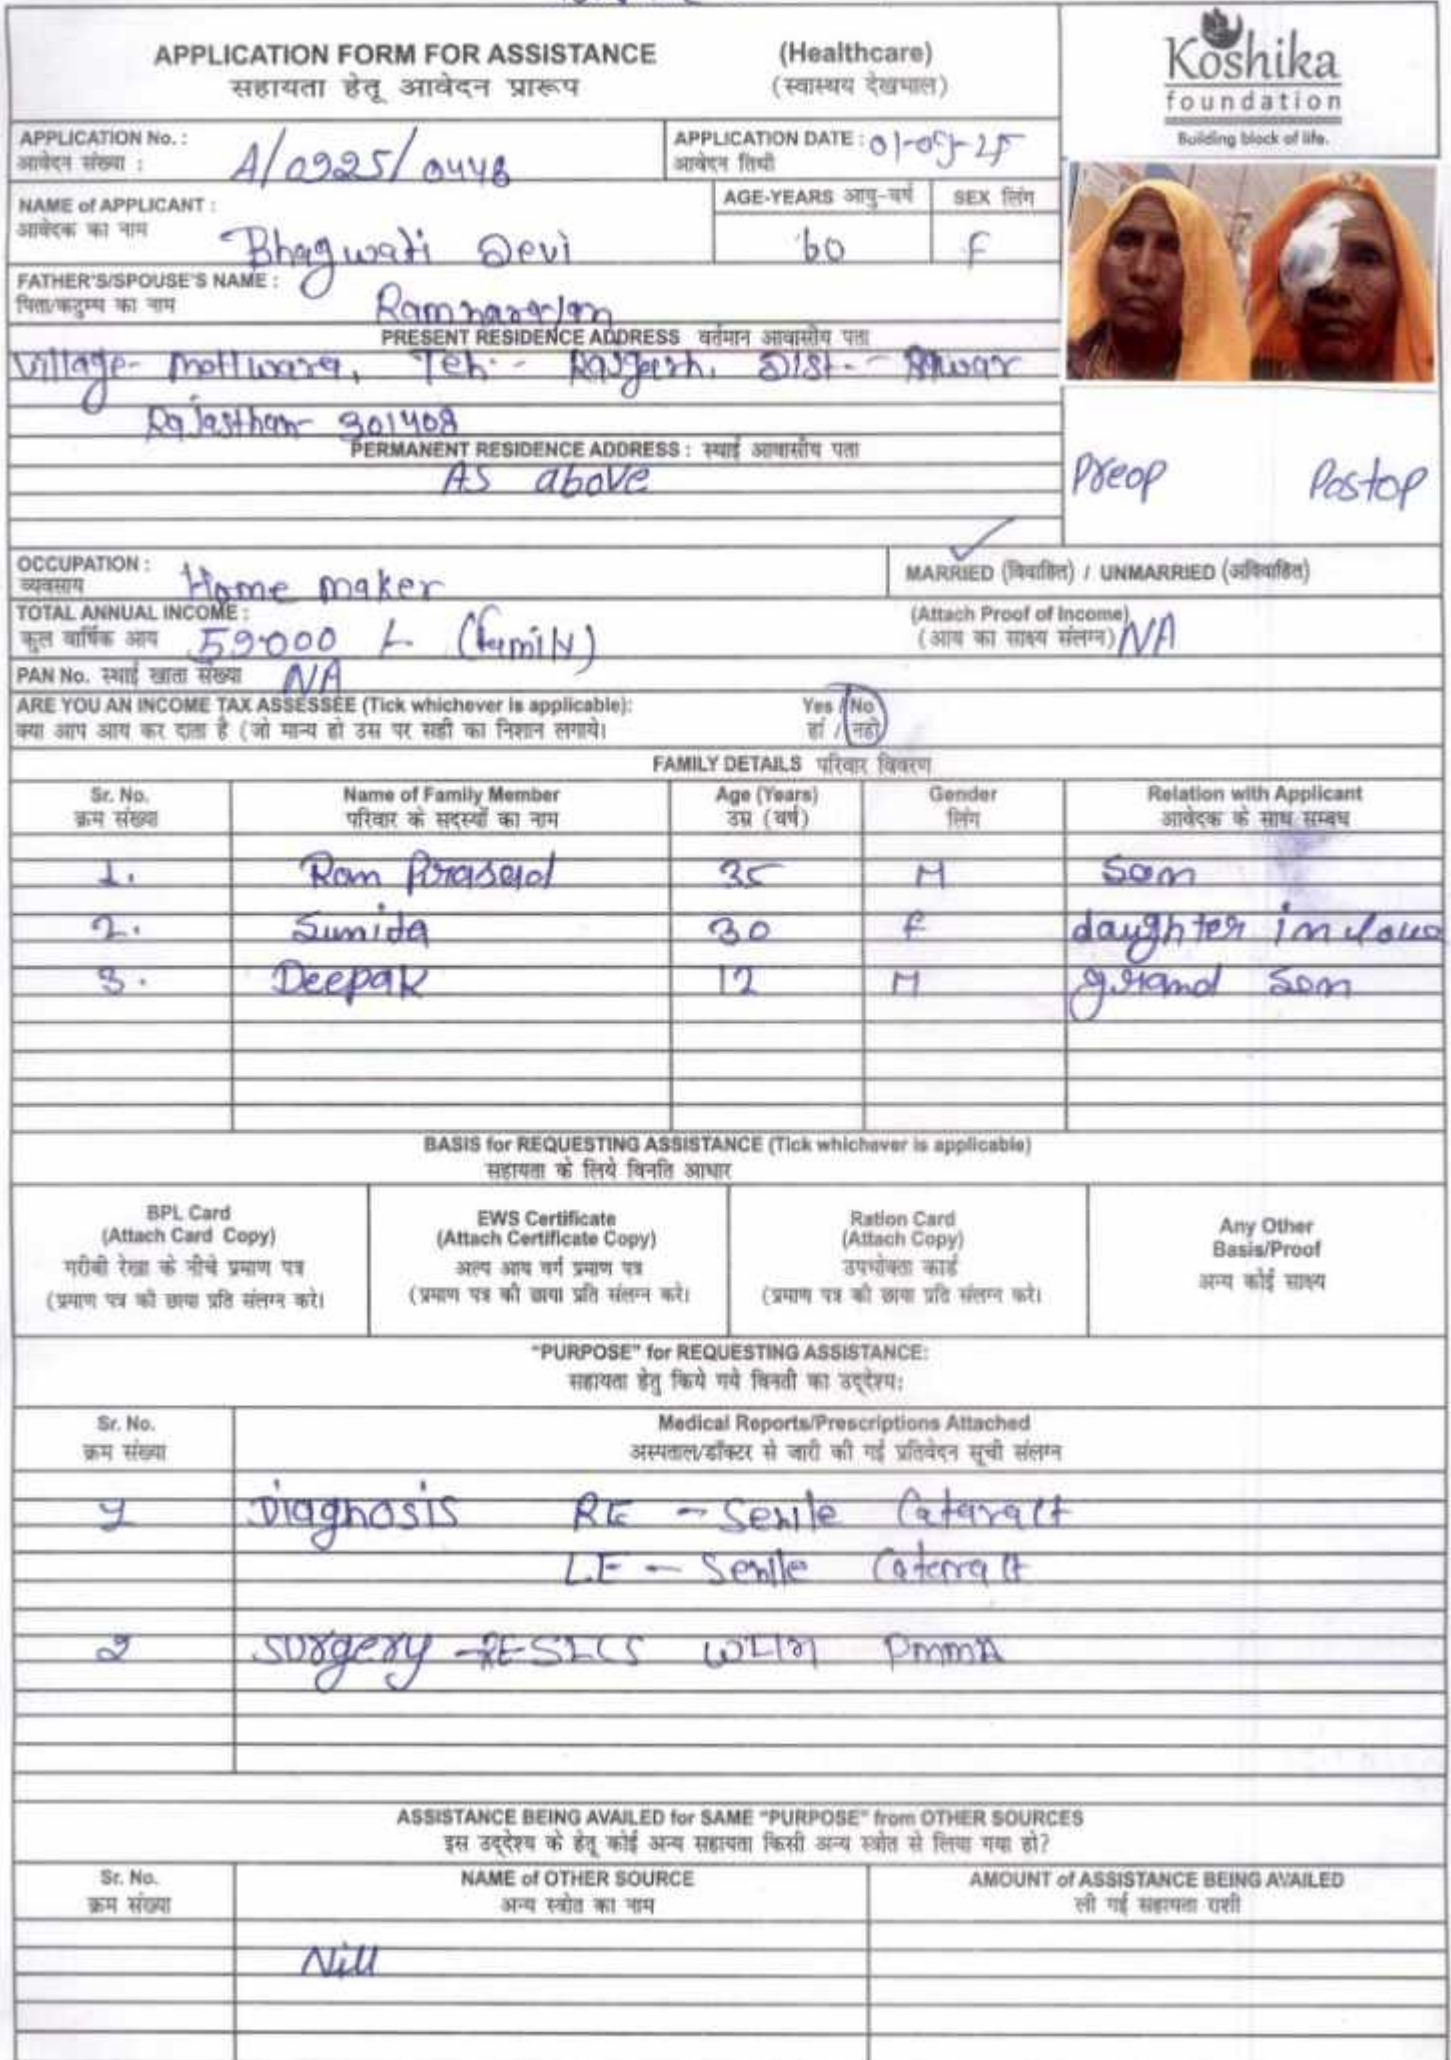 APPLICATION FORM FOR ASSISTANCE (Healthcare)
सहायता हेतू आवेदन प्रारूप (स्वास्थय देखभाल)
Koshika
foundation
Building block of life.
APPLICATION No. : A/0925/0448
आवेदन संख्या :
APPLICATION DATE : 01-09-25
आवेदन तिथी
NAME of APPLICANT : Bhagwati Devi
आवेदक का नाम
AGE-YEARS आयु-वर्ष 60
SEX लिंग F
FATHER'S/SPOUSE'S NAME : Ramnarayan
पिता/कटुम्य का नाम
PRESENT RESIDENCE ADDRESS वर्तमान आवासीय पता
Village- Teh.- Rajgarh, Dist.- Alwar
Rajasthan- 301408
PERMANENT RESIDENCE ADDRESS : स्थाई आवासीय पता
As above
Preop Postop
OCCUPATION : Home maker
व्यवसाय
MARRIED (विवाहित) / UNMARRIED (अविवाहित)
TOTAL ANNUAL INCOME :
कुल वार्षिक आय 59000 (family)
(Attach Proof of Income)
(आय का साक्ष्य संलग्न) NA
PAN No. स्थाई खाता संख्या NA
ARE YOU AN INCOME TAX ASSESSEE (Tick whichever is applicable): Yes / No
क्या आप आय कर दाता है (जो मान्य हो उस पर सही का निशान लगाये। हां / नही
FAMILY DETAILS परिवार विवरण
Sr. No. Name of Family Member Age (Years) Gender Relation with Applicant
क्रम संख्या परिवार के सदस्यों का नाम उम्र (वर्ष) लिंग आवेदक के साथ सम्बध
1. Ram Prasad 35 M Son
2. Sumida 30 F daughter in law
3. Deepak 12 M grand Son
BASIS for REQUESTING ASSISTANCE (Tick whichever is applicable)
सहायता के लिये विनति आधार
BPL Card
(Attach Card Copy)
गरीबी रेखा के नीचे प्रमाण पत्र
(प्रमाण पत्र की छाया प्रति संलग्न करे।
EWS Certificate
(Attach Certificate Copy)
अल्प आय वर्ग प्रमाण पत्र
(प्रमाण पत्र की छाया प्रति संलग्न करे।
Ration Card
(Attach Copy)
उपभोक्ता कार्ड
(प्रमाण पत्र की छाया प्रति संलग्न करे।
Any Other
Basis/Proof
अन्य कोई साक्ष्य
"PURPOSE" for REQUESTING ASSISTANCE:
सहायता हेतु किये गये विनती का उद्देश्य:
Sr. No. Medical Reports/Prescriptions Attached
क्रम संख्या अस्पताल/डॉक्टर से जारी की गई प्रतिवेदन सूची संलग्न
1 Diagnosis RE - Senile Cataract
LE - Senile Cataract
2 Surgery - RE SICS with PMMA
ASSISTANCE BEING AVAILED for SAME "PURPOSE" from OTHER SOURCES
इस उद्देश्य के हेतू कोई अन्य सहायता किसी अन्य स्त्रोत से लिया गया हो?
Sr. No. NAME of OTHER SOURCE AMOUNT of ASSISTANCE BEING AVAILED
क्रम संख्या अन्य स्त्रोत का नाम ली गई सहायता राशी
Nill